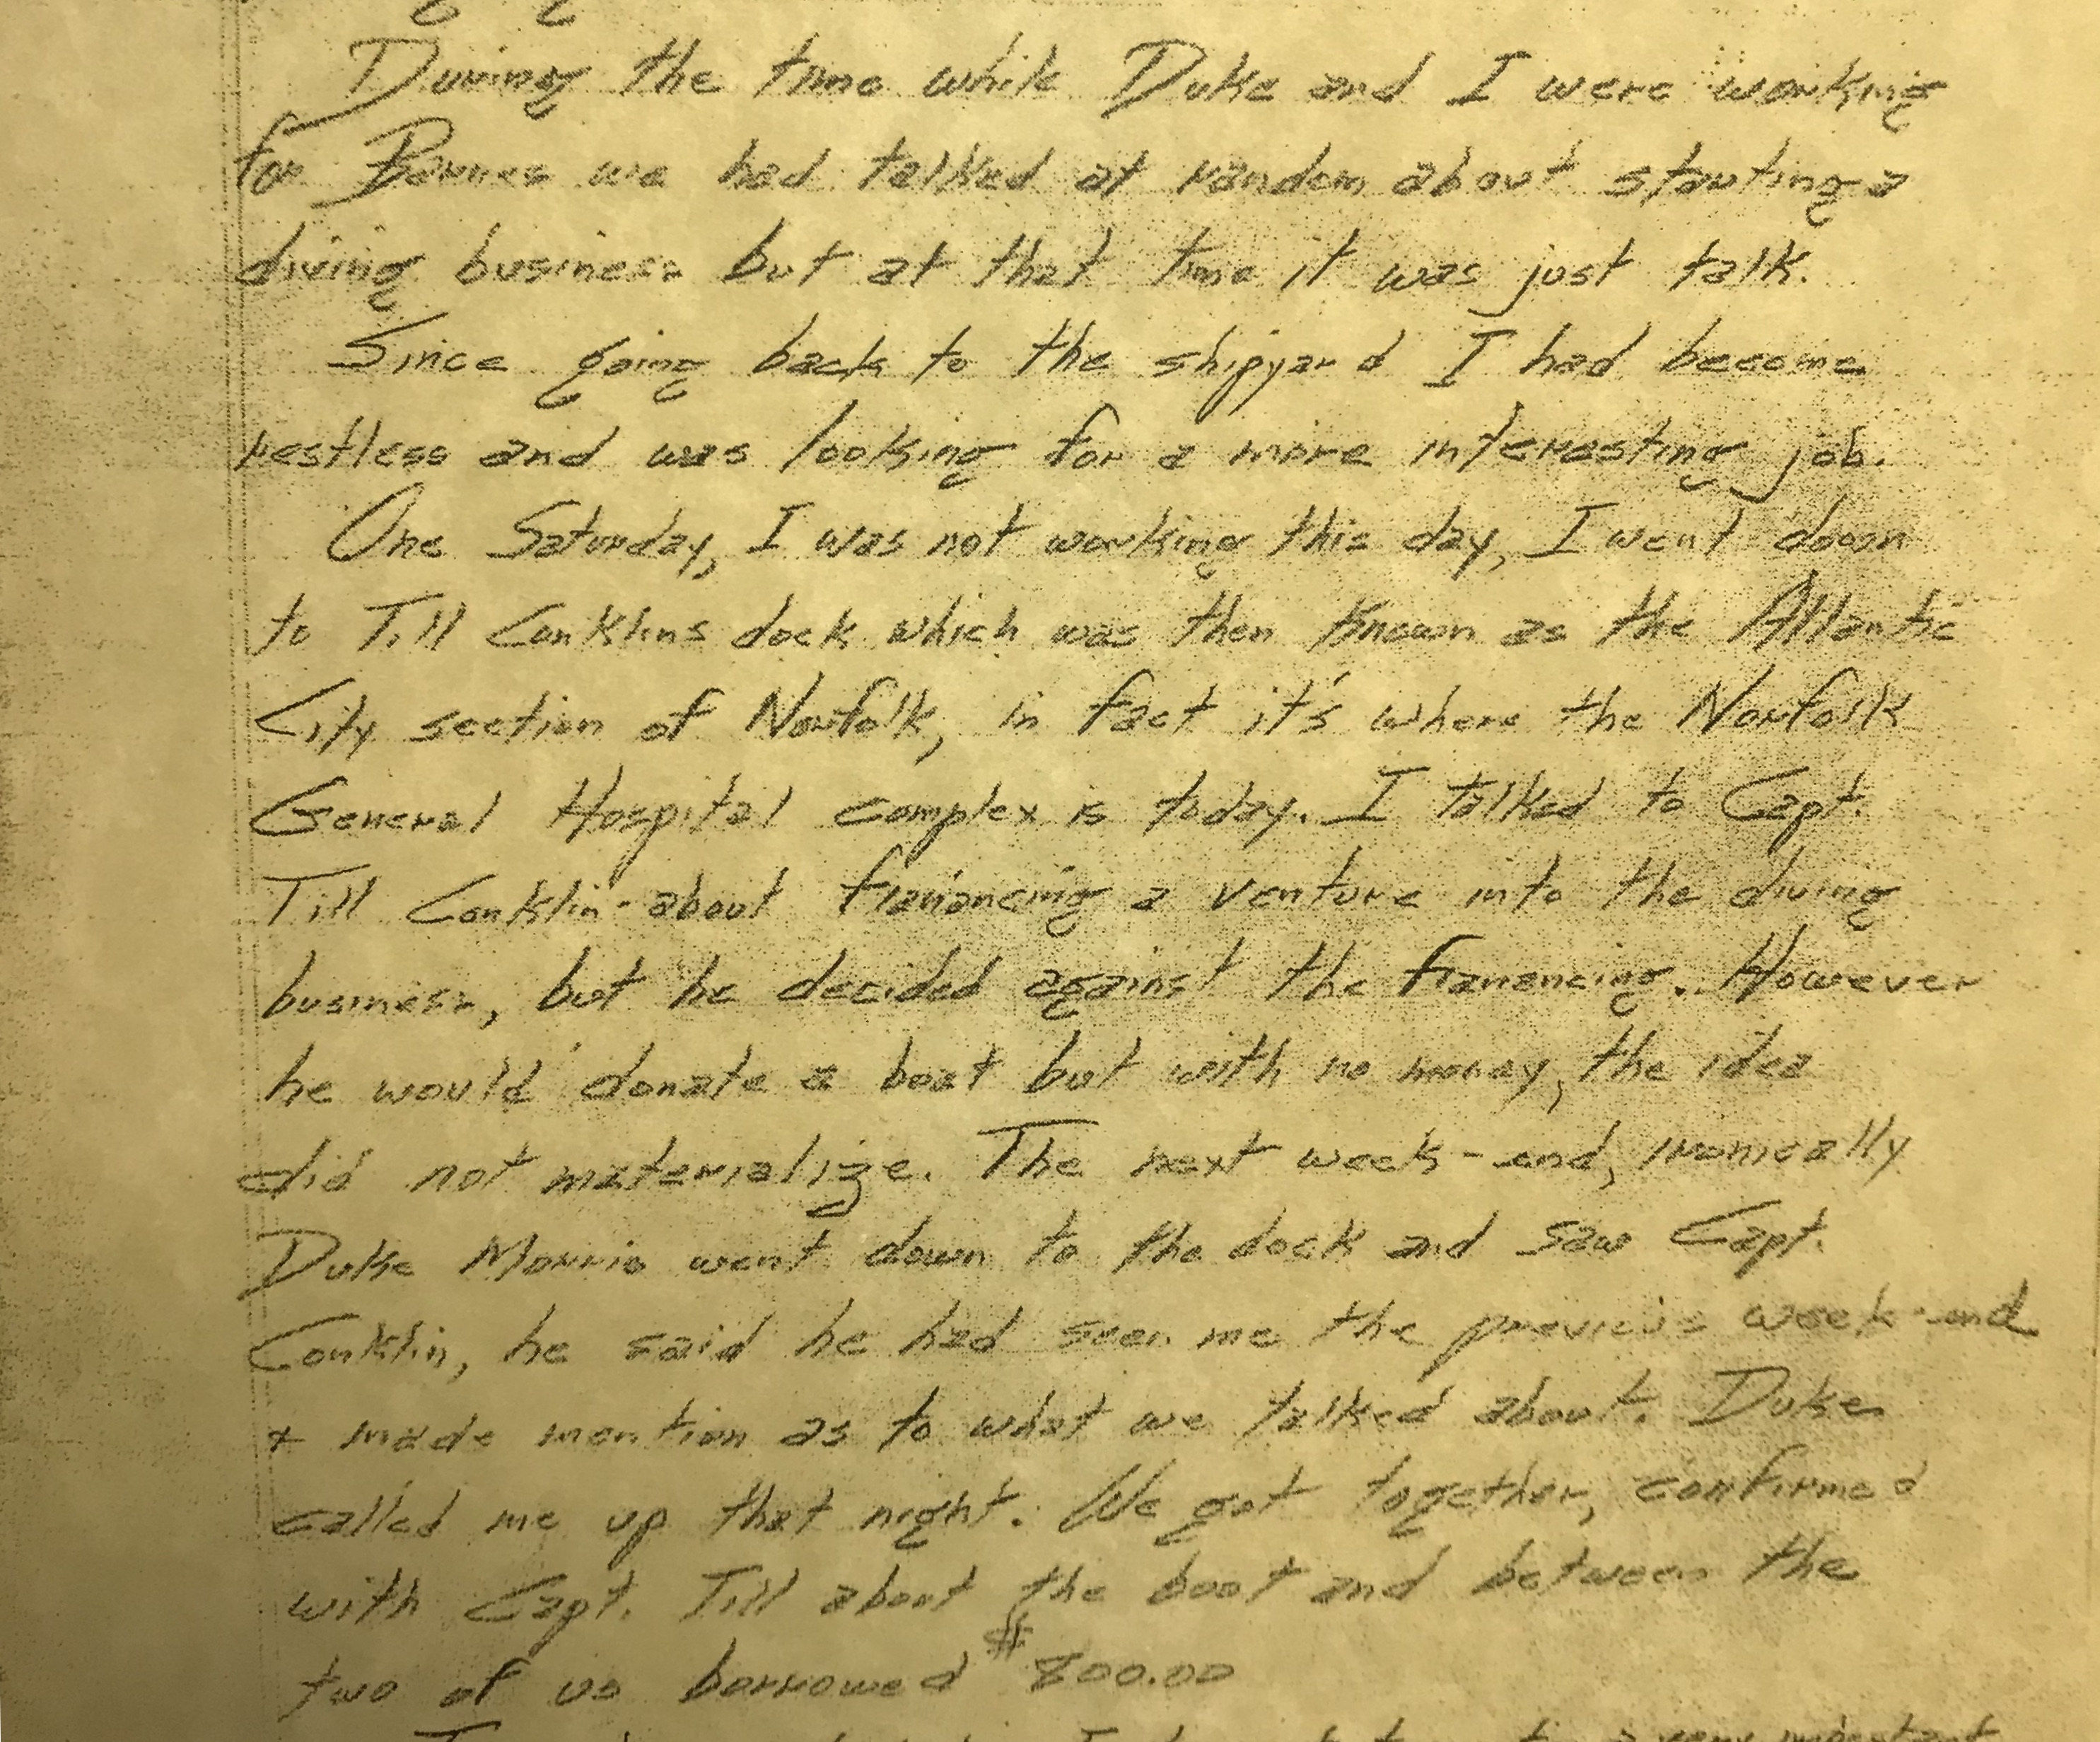 During the time while Duke and I were working
for Barnes we had talked at random about starting a
diving business but at that time it was just talk.
Since going back to the shipyard I had become
restless and was looking for a more interesting job.
One Saturday, I was not working this day, I went down
to Till Conklins dock which was then known as the Atlantic
City section of Norfolk, in fact it's where the Norfolk
General Hospital complex is today. I talked to Capt.
Till Conklin about a venture into the diving
business, but he decided against the However
he would donate a boat but with no money, the idea
did not materialize. The next week-end, ironically
Duke Morris went down to the dock and saw Capt.
Conklin, he said he had seen me the previous week-end
+ made mention as to what we talked about. Duke
called me up that night. We got together, confirmed
with Capt. Till about the boat and between the
two of us borrowed $800.00